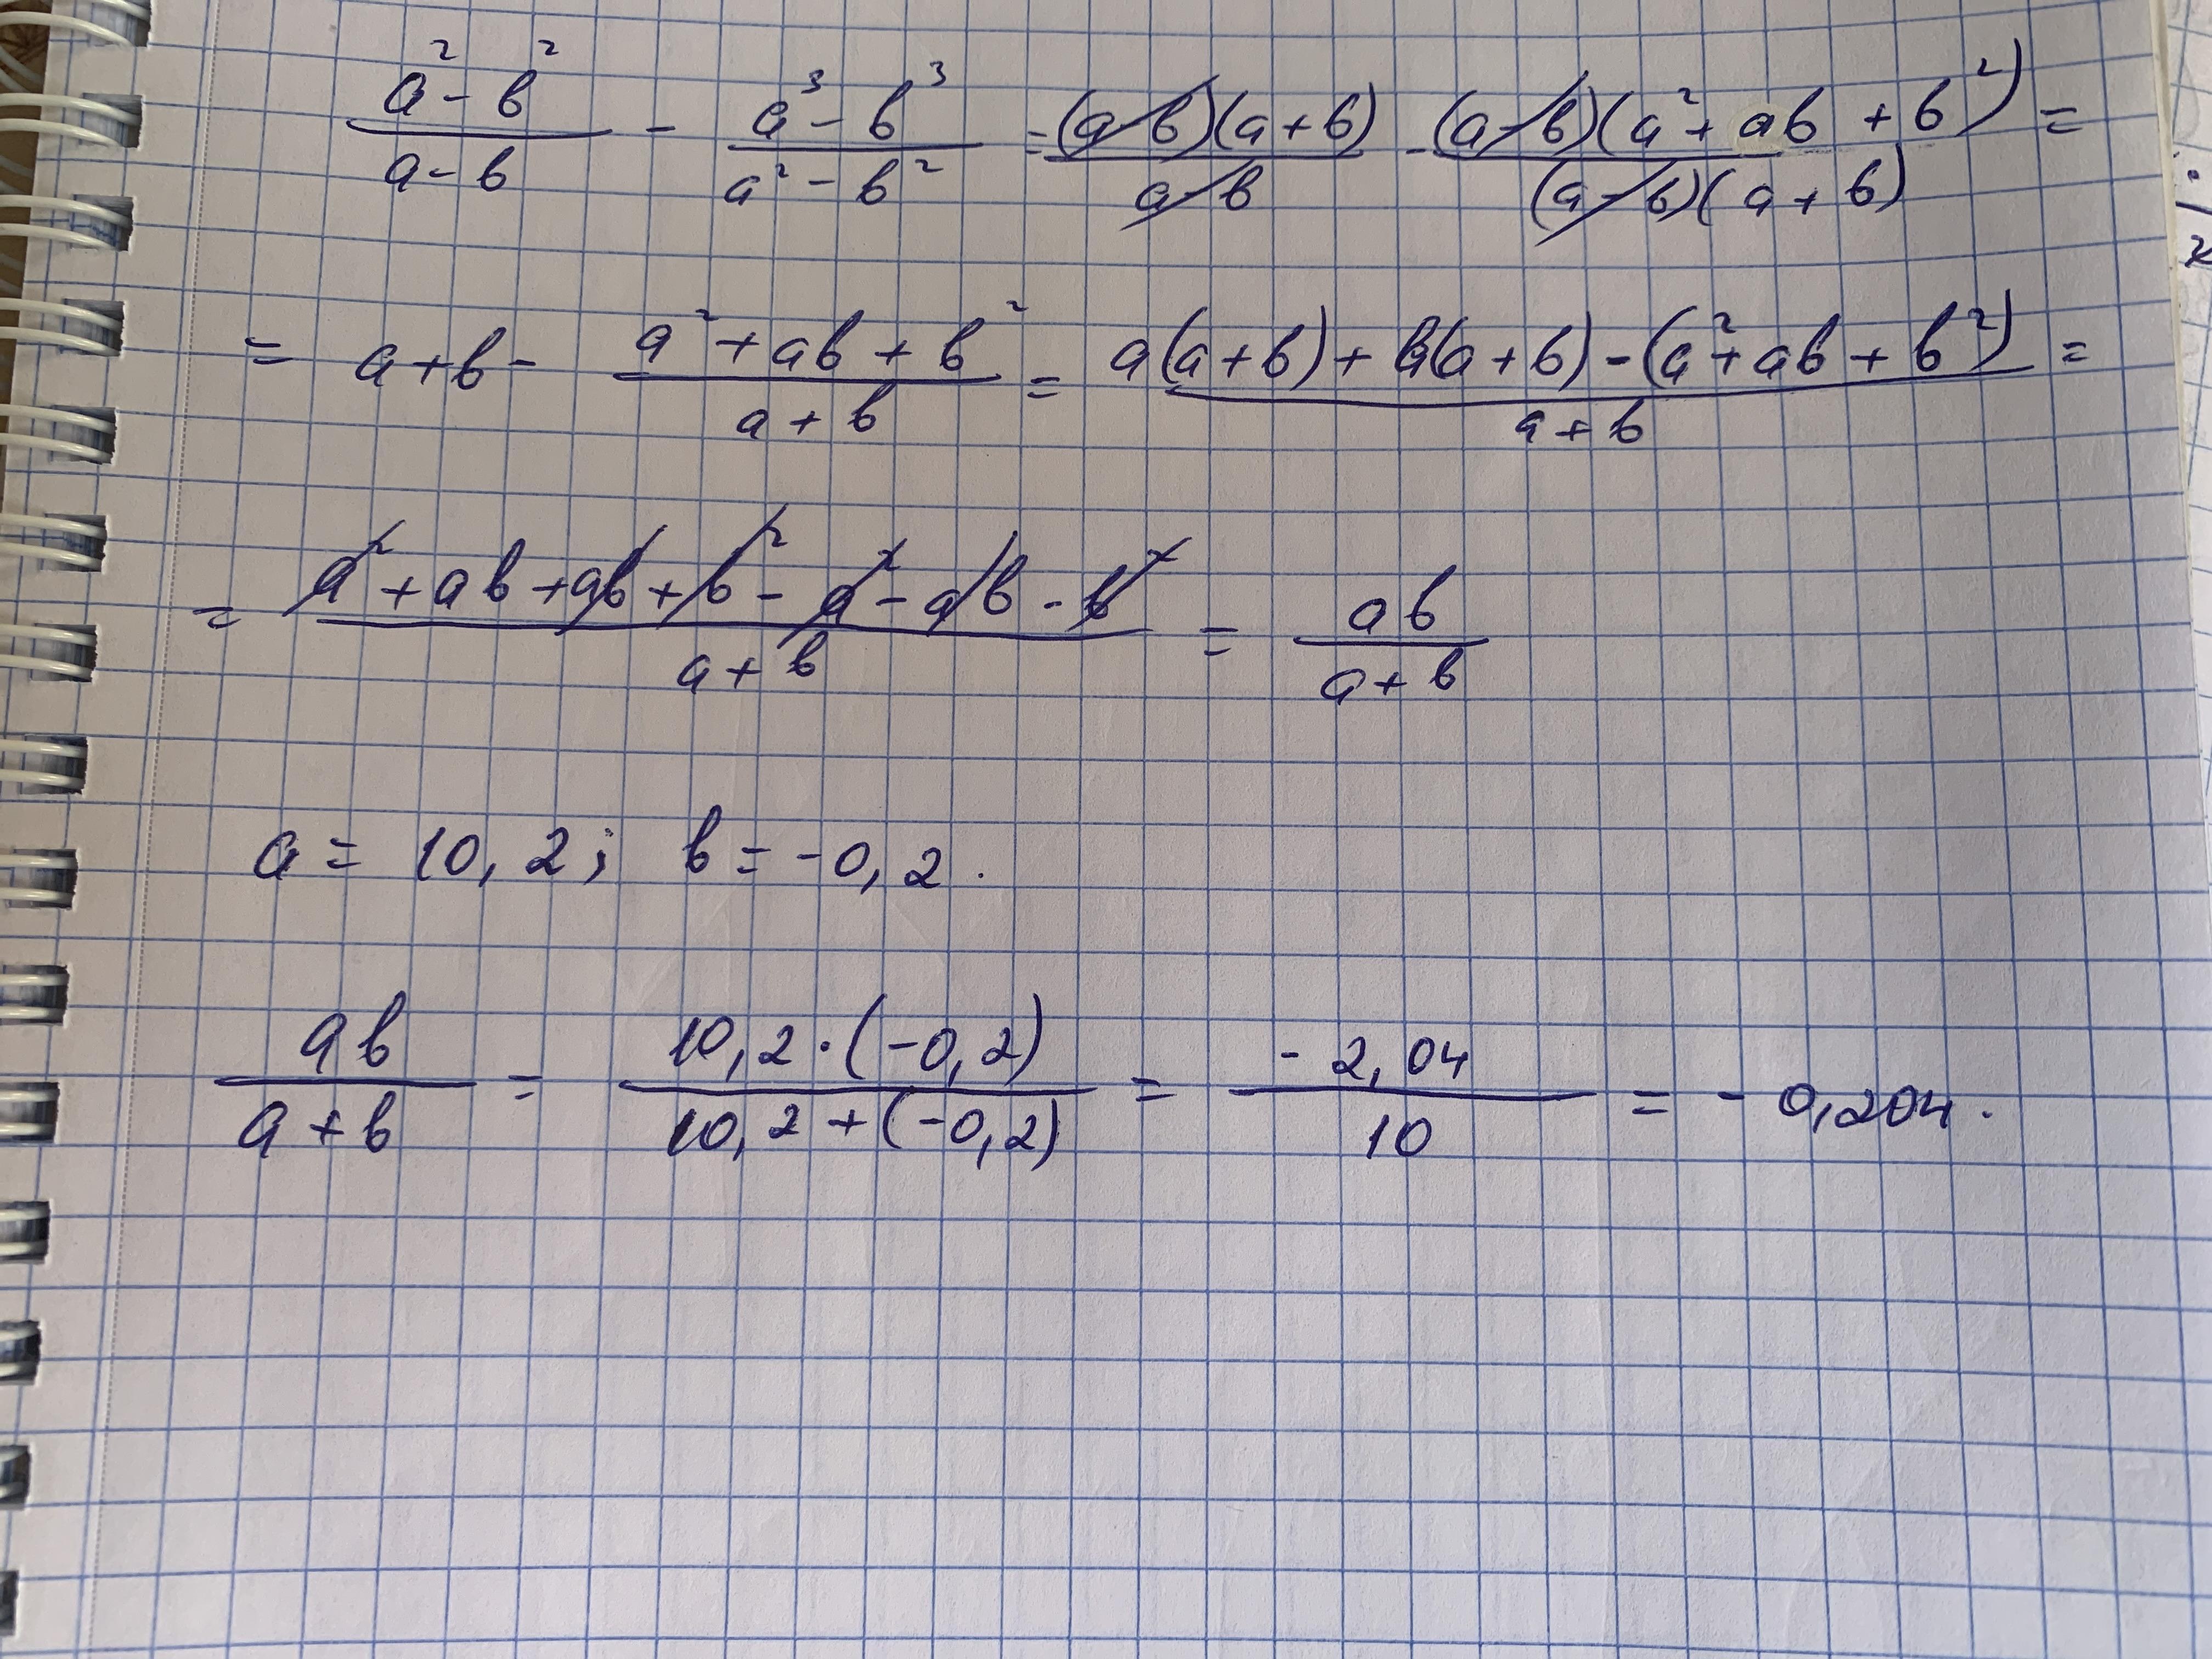 (a² - b²)/(a - b) - (a³ - b³)/(a² - b²) = (a-b)(a+b)/(a-b) - (a-b)(a² + ab + b²)/((a-b)(a+b)) =
= a+b - (a² + ab + b²)/(a + b) = (a(a+b) + b(a+b) - (a² + ab + b²))/(a + b) =
= (a² + ab + ab + b² - a² - ab - b²)/(a + b) = ab/(a + b)
a = 10,2; b = -0,2.
ab/(a + b) = (10,2 · (-0,2))/(10,2 + (-0,2)) = -2,04/10 = -0,204.